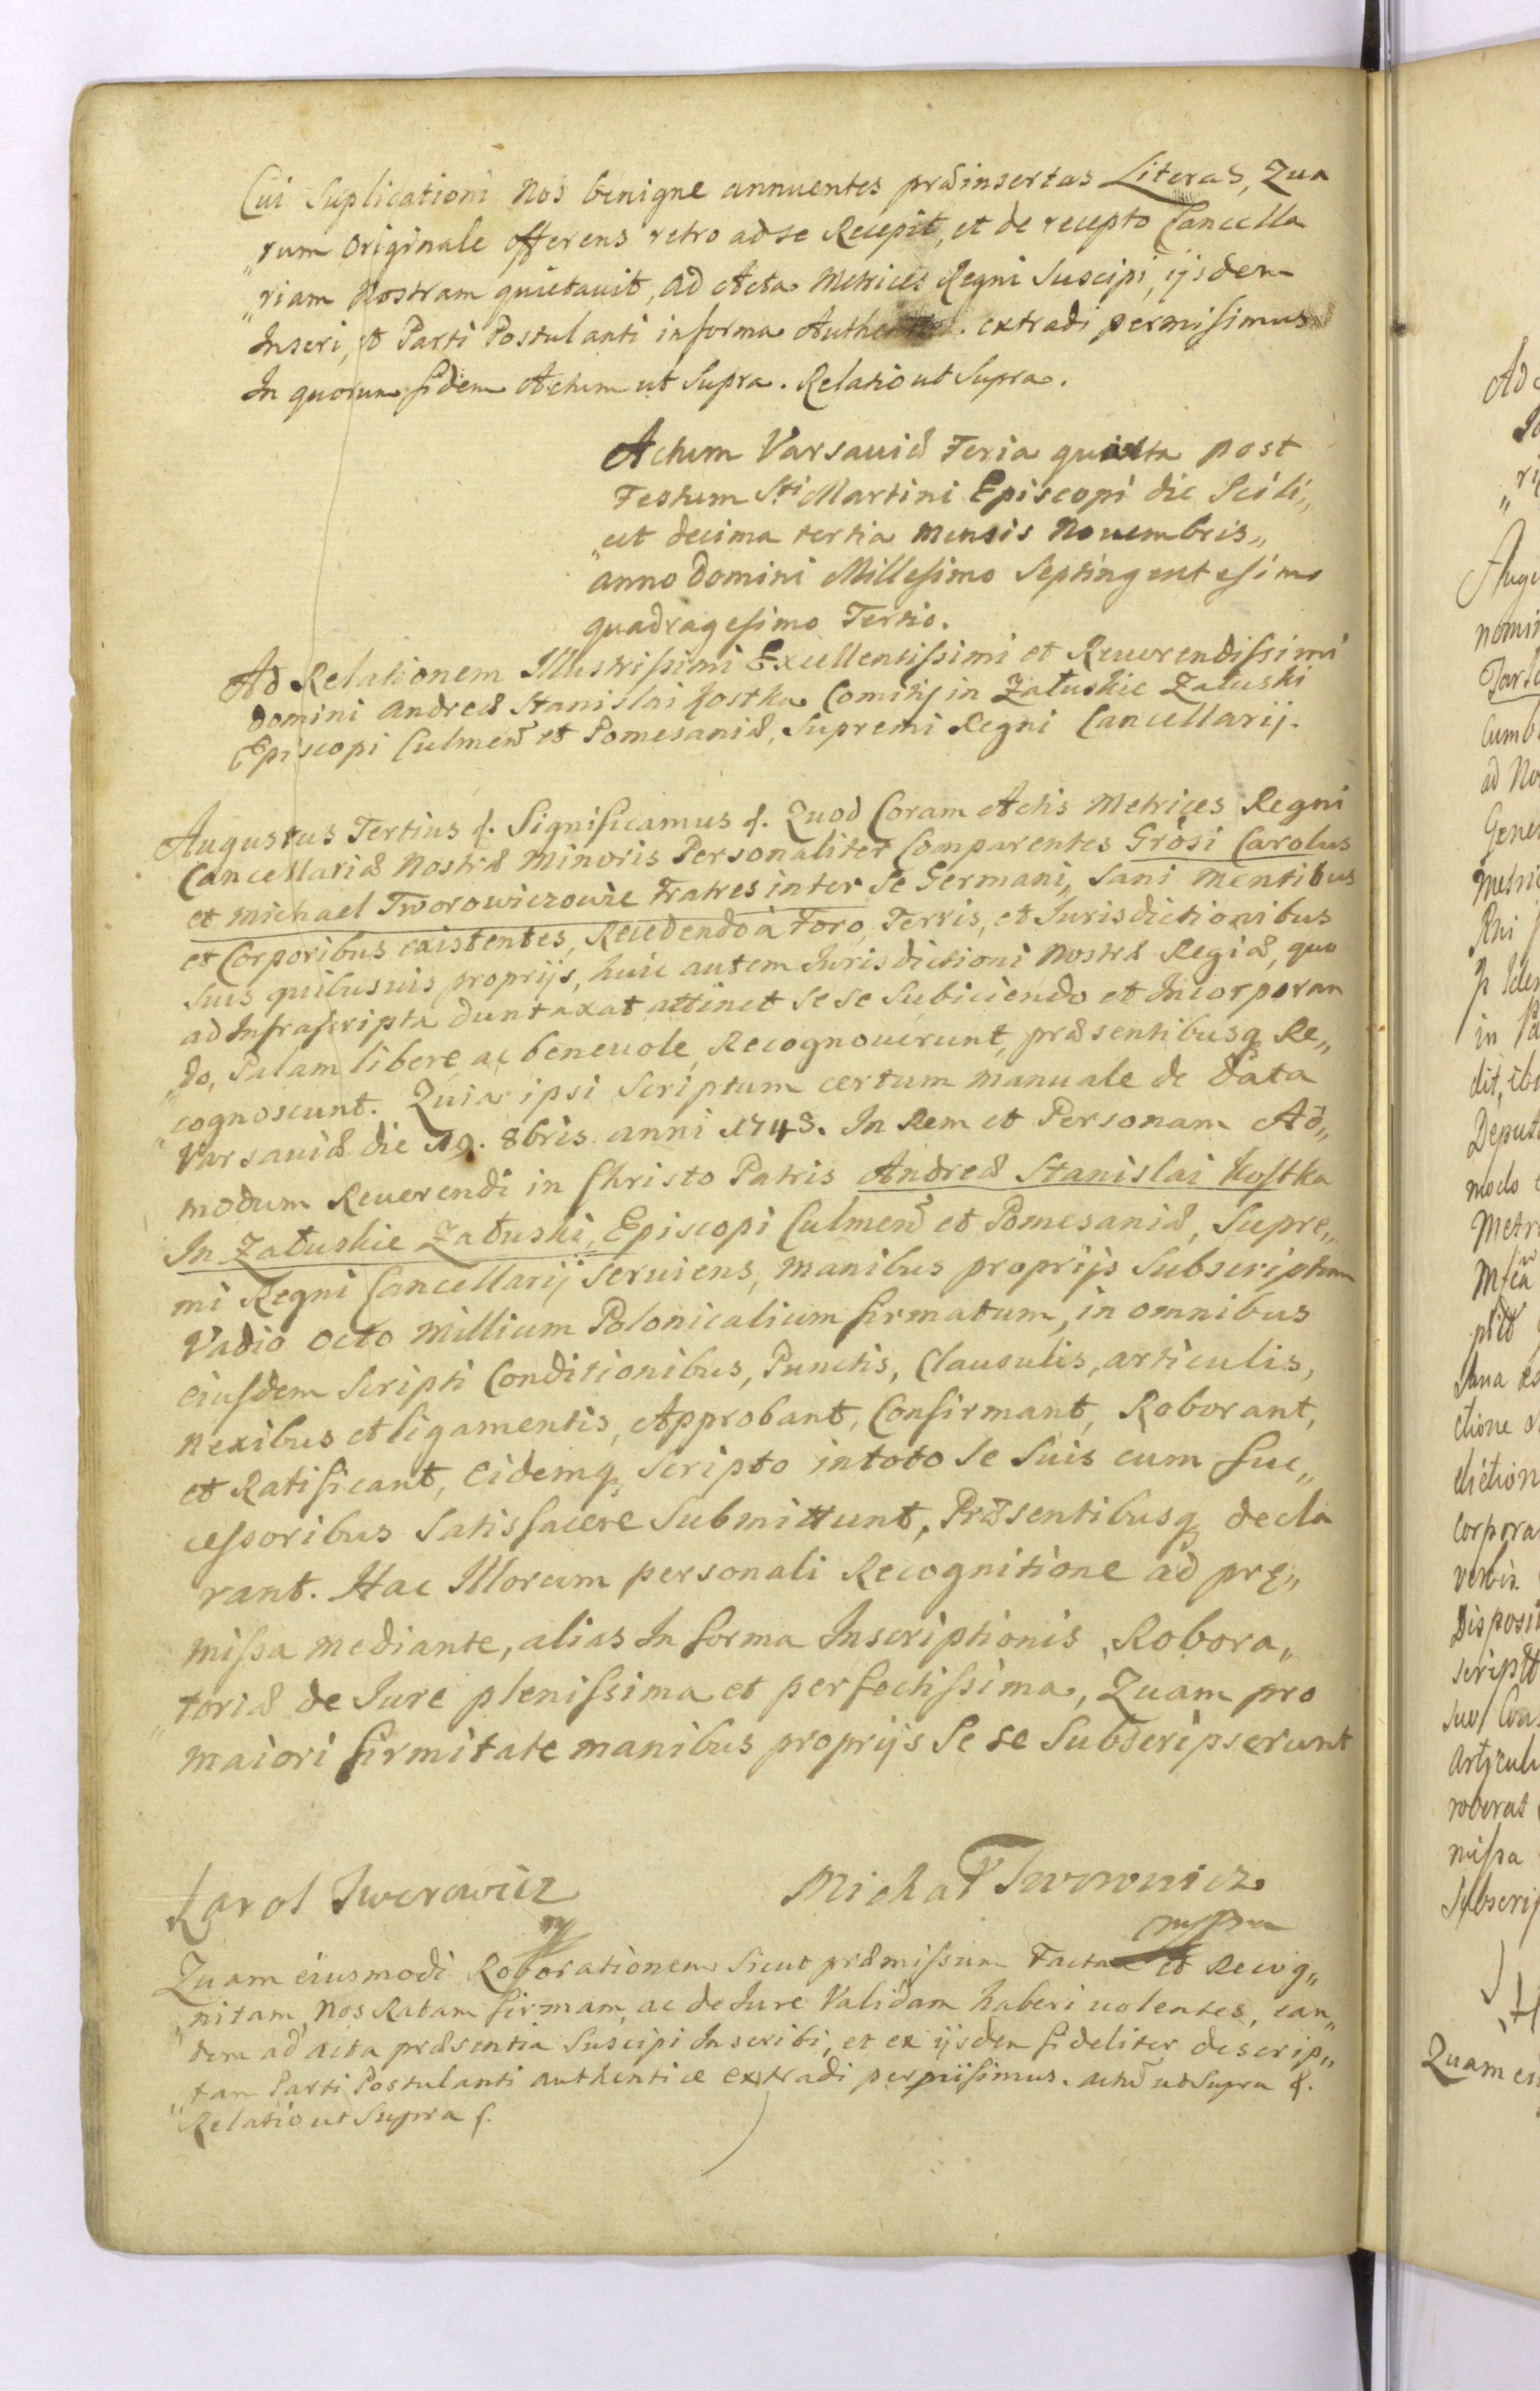 Cui Suplicationi Nos benigne annuentes præinsertas Literas, Qua
„rum Originale offerens retro ad se Recepit, et de recepto Cancella
„riam Nostram quietavit, ad Acta Metrices Regni Suscipi, ijsdem
Inseri, et Parti Postulanti in forma extradi permisimus
In quorum fidem Actum ut Supra. Relatio ut Supra.
Actum Varsaviæ Feria post
Festum Sti Martini Episcopi die Scili„
„cet decima tertia mensis Novembris„
anno Domini Millesimo Septingentesimo
quadragesimo Tertio.
Ad Relationem Illustrissimi Excellentissimi et Reverendissimi
Domini Andreæ Stanislai Kostka Comitis in Załuskie Załuski
Episcopi Culmen̄ et Pomesaniæ, Supremi Regni Cancellarij.
Augustus Tertius &. Significamus &. Quod Coram Actis Metrices Regni
Cancellariæ Nostræ Minoris Personaliter Comparentes Grosi Carolus
et Michael Tworowiczowie Fratres inter Se Germani, Sani Mentibus
et Corporibus existentes, Recedendo à Foro, Terris, et Iurisdictionibus
Suis quibusuis proprijs, huic autem Iurisdictioni Nostræ Regiæ, quo
ad Infrascripta duntaxat attinet Se Se Subiiciendo et Incorporan
„do, Palam libere ac beneuole Recognouerunt, præsentibusq Re„
„cognoscunt. Quia ipsi Scriptum certum manuale de Data
Varsaviæ die 19. 8bris anni 1743. In Rem et Personam Ad„
modum Reverendi in Christo Patris Andreæ Stanislai Kostka
In Załuskie Załuski, Episcopi Culmen̄ et Pomesaniæ, Supre„
mi Regni Cancellarij Seruiens, manibus proprijs Subscriptum
Vadio Octo Millium Polonicalium firmatum, in omnibus
eiusdem Scripti Conditionibus, Punctis, Clausulis, articulis,
nexibus et ligamentis, Approbant, Confirmant, Roborant,
et Ratificant, Eidemq Scripto in toto Se Suis cum Suc„
cessoribus Satisfacere Submittunt, Præsentibusq decla
rant. Hac Illorum personali Recognitione ad prę„
missa mediante, alias In forma Inscriptionis Robora„
„toriæ de Iure plenissima et perfectissima, Quam pro
maiori firmitate manibus proprijs Se se Subscripserunt
Karol Tworowicz Michał Tworowicz
Quam eiusmodi Roborationem Sicut præmissum Factam et Recog„
„nitam, Nos Ratam firmam, ac de Iure Validam haberi uolentes, ean„
dem ad Acta præsentia Suscipi Inscribi, et ex ijsdem fideliter descrip„
„tam Parti Postulanti authentice extradi permisimus. actū ut Supra &.
Relatio ut Supra &.